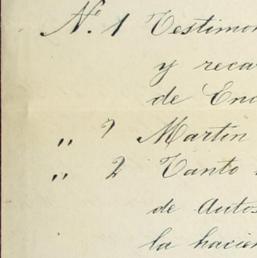 No. 1 Testimon
y reca
de Ene
„ ? Martin
„ 2 Tanto
de autos
la hacien